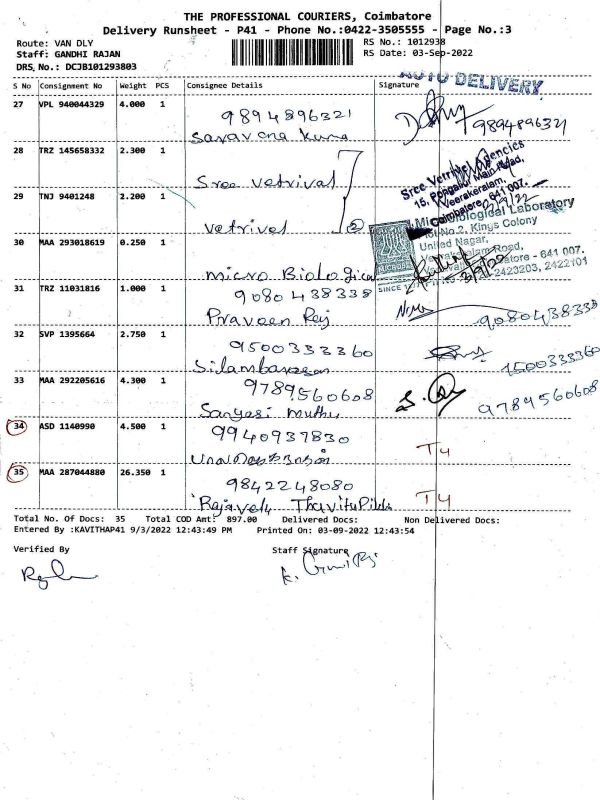 THE PROFESSIONAL COURIERS, Coimbatore
Delivery Runsheet - P41 - Phone No.:0422-3505555 - Page No.:3
Route: VAN DLY
RS No.: 1012938
Staff: GANDHI RAJAN
RS Date: 03-Sep-2022
DRS, No.: DCJB101293803
AUTO DELIVERY
S No Consignment No Weight PCS Consignee Details Signature
27 VPL 940044329 4.000 1 9894896321
9789489632
Saravana Kuma
28 TRZ 145658332 2.300 1
Sree Vetrival
Sree Vetrivel Agencies
15, Pongaliur Main Road,
Veerakeralam,
Coimbatore - 641 007.
29 TNJ 9401248 2.200 1
Vetrival 2
Microbiological Laboratory
No.2, Kings Colony
United Nagar,
Road,
- 641 007.
2423203, 2422101
SINCE
30 MAA 293018619 0.250 1
Micro Biologica
31 TRZ 11031816 1.000 1 9080438338
Praveen Raj
9080438338
32 SVP 1395664 2.750 1 9500333360
Silambarasan
9500333360
33 MAA 292205616 4.300 1 9789560608
Sanyasi Muthu
9789560608
34 ASD 1140990 4.500 1 9940937830
T4
35 MAA 287044880 26.350 1 9842248080
Rajavelu
T4
Total No. Of Docs: 35 Total COD Amt: 897.00 Delivered Docs: Non Delivered Docs:
Entered By :KAVITHAP41 9/3/2022 12:43:49 PM Printed On: 03-09-2022 12:43:54
Verified By Staff Signature